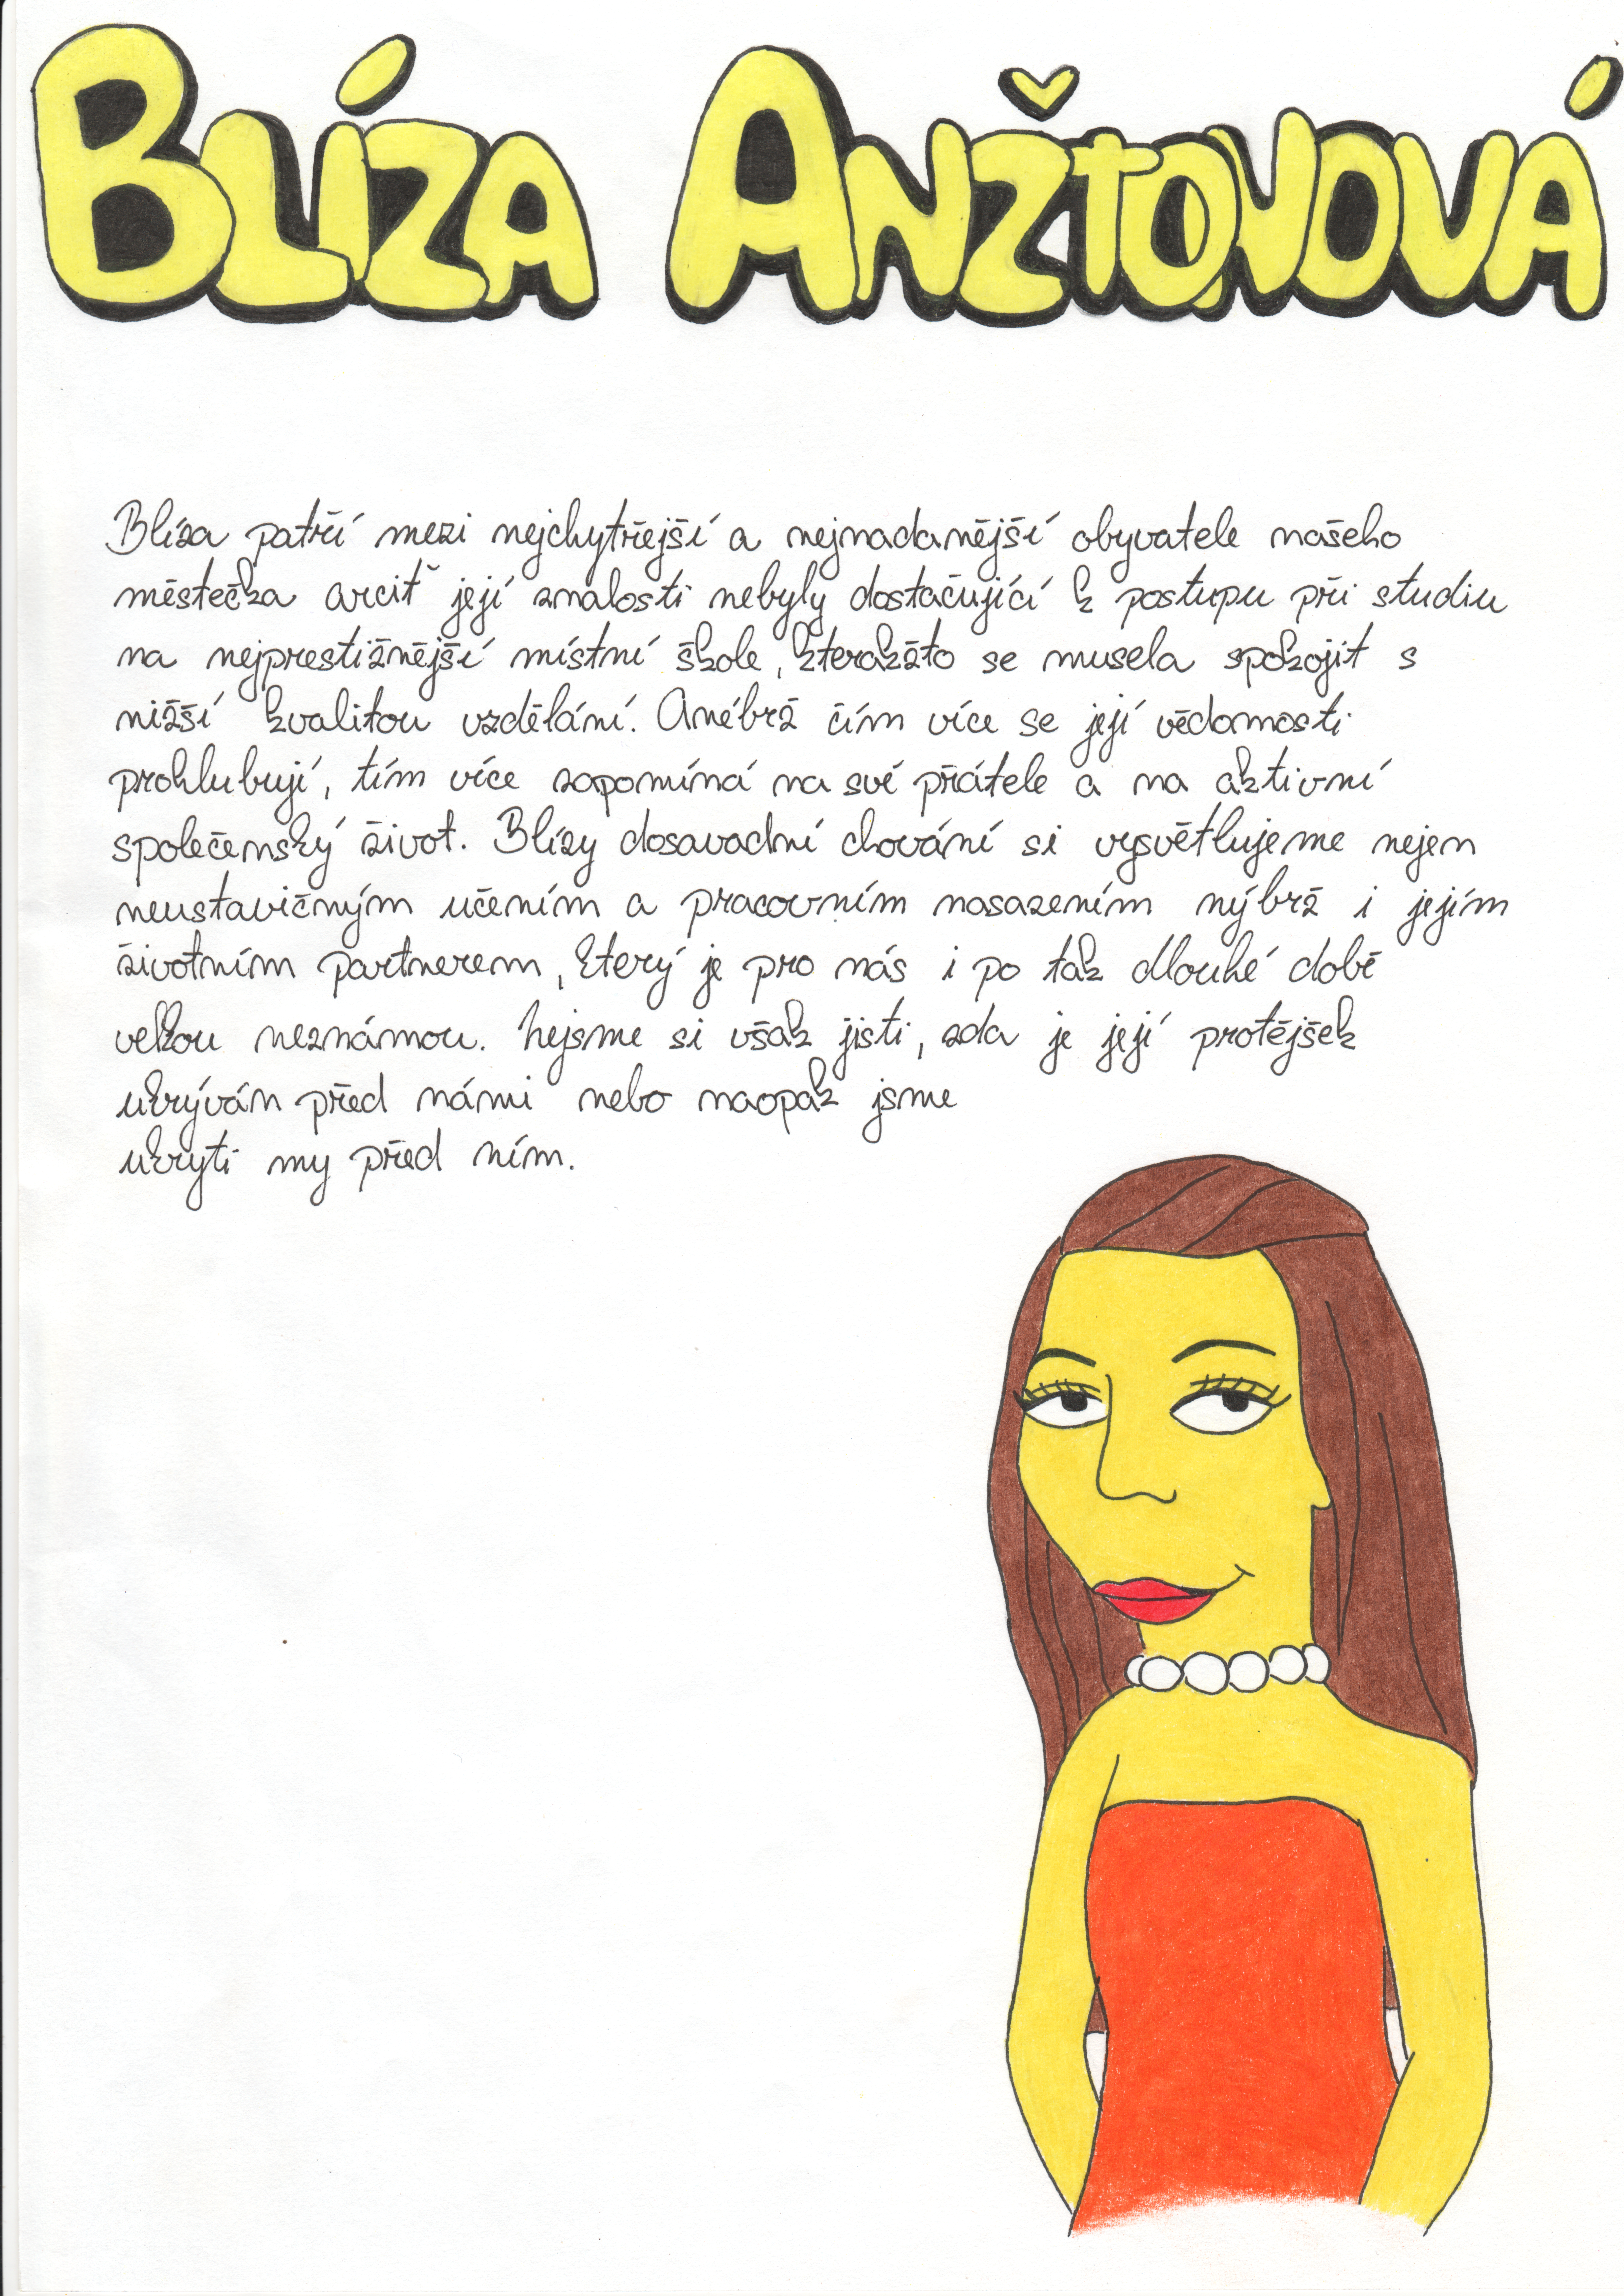 BLÍZA ANŽTONOVÁ
Blíza patří mezi nejchytřejší a nejnadanější obyvatele našeho
městečka arciť její znalosti nebyly dostačující k postupu při studiu
na nejprestižnější místní škole, kterakžto se musela spokojit s
nižší kvalitou vzdělání. Anébrž čím více se její vědomosti
prohlubují, tím více zapomíná na své přátele a na aktivní
společenský život. Blízy dosavadní chování si vysvětlujeme nejen
neustavičným učením a pracovním nasazením nýbrž i jejím
životním partnerem, který je pro nás i po tak dlouhé době
velkou neznámou. Nejsme si však jisti, zda je její protějšek
ukrýván před námi nebo naopak jsme
ukryti my před ním.